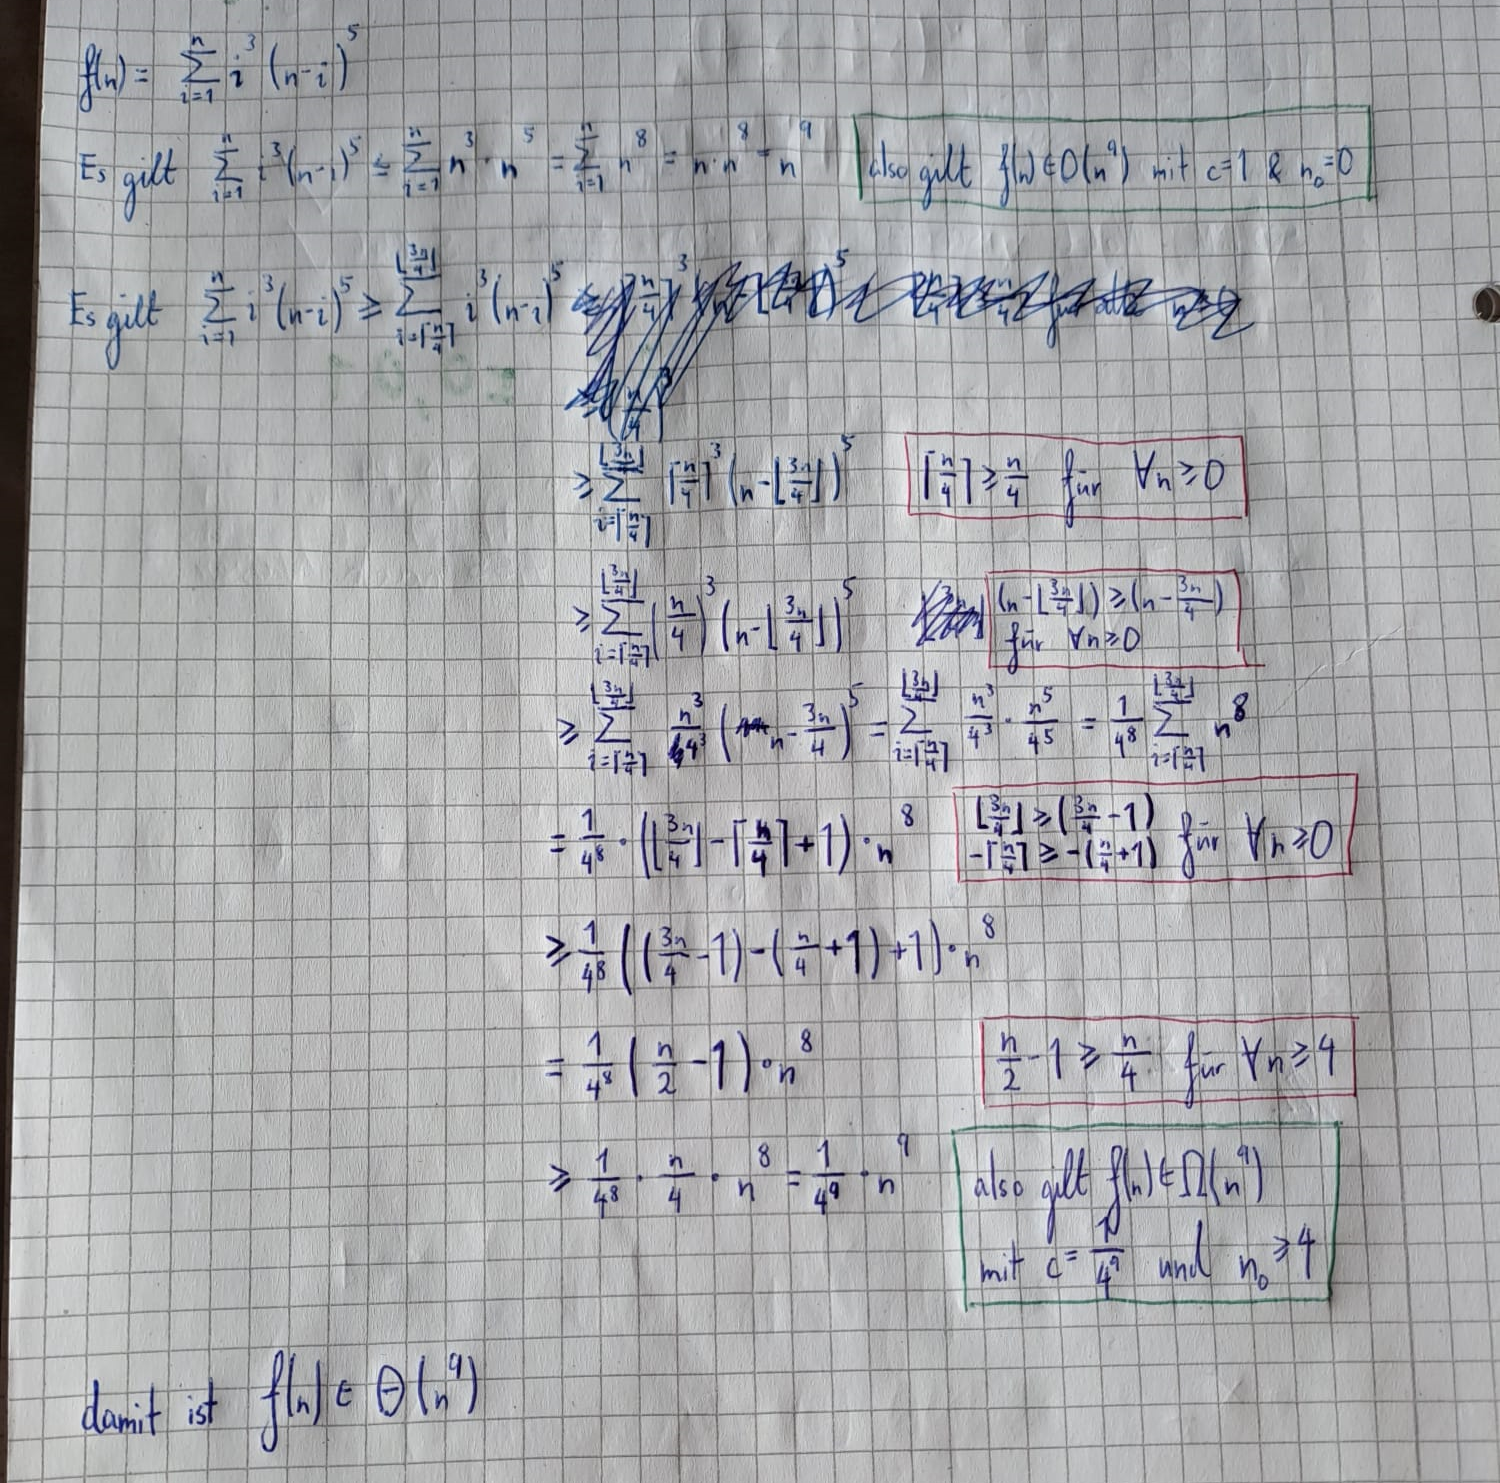 f(n) = ∑_{i=1}^{n} i³ (n-i)⁵
Es gilt ∑_{i=1}^{n} i³(n-i)⁵ ≤ ∑_{i=1}^{n} n³ · n⁵ = ∑_{i=1}^{n} n⁸ = n·n⁸ = n⁹ also gilt f(n) ∈ O(n⁹) mit c=1 & n₀=0
Es gilt ∑_{i=1}^{n} i³(n-i)⁵ ≥ ∑_{i=⌈n/4⌉}^{⌊3n/4⌋} i³(n-i)⁵
≥ ∑_{i=⌈n/4⌉}^{⌊3n/4⌋} ⌈n/4⌉³ (n-⌊3n/4⌋)⁵ ⌈n/4⌉ ≥ n/4 für ∀n≥0
≥ ∑_{i=⌈n/4⌉}^{⌊3n/4⌋} (n/4)³ (n-⌊3n/4⌋)⁵ (n-⌊3n/4⌋) ≥ (n-3n/4)
für ∀n≥0
≥ ∑_{i=⌈n/4⌉}^{⌊3n/4⌋} n³/4³ (n-3n/4)⁵ = ∑_{i=⌈n/4⌉}^{⌊3n/4⌋} n³/4³ · n⁵/4⁵ = 1/4⁸ ∑_{i=⌈n/4⌉}^{⌊3n/4⌋} n⁸
= 1/4⁸ · (⌊3n/4⌋-⌈n/4⌉+1) · n⁸ ⌊3n/4⌋ ≥ (3n/4-1)
-⌈n/4⌉ ≥ -(n/4+1) für ∀n≥0
≥ 1/4⁸ ((3n/4-1)-(n/4+1)+1) · n⁸
= 1/4⁸ (n/2-1) · n⁸ n/2-1 ≥ n/4 für ∀n≥4
≥ 1/4⁸ · n/4 · n⁸ = 1/4⁹ · n⁹ also gilt f(n) ∈ Ω(n⁹)
mit c = 1/4⁹ und n₀ ≥ 4
damit ist f(n) ∈ Θ(n⁹)